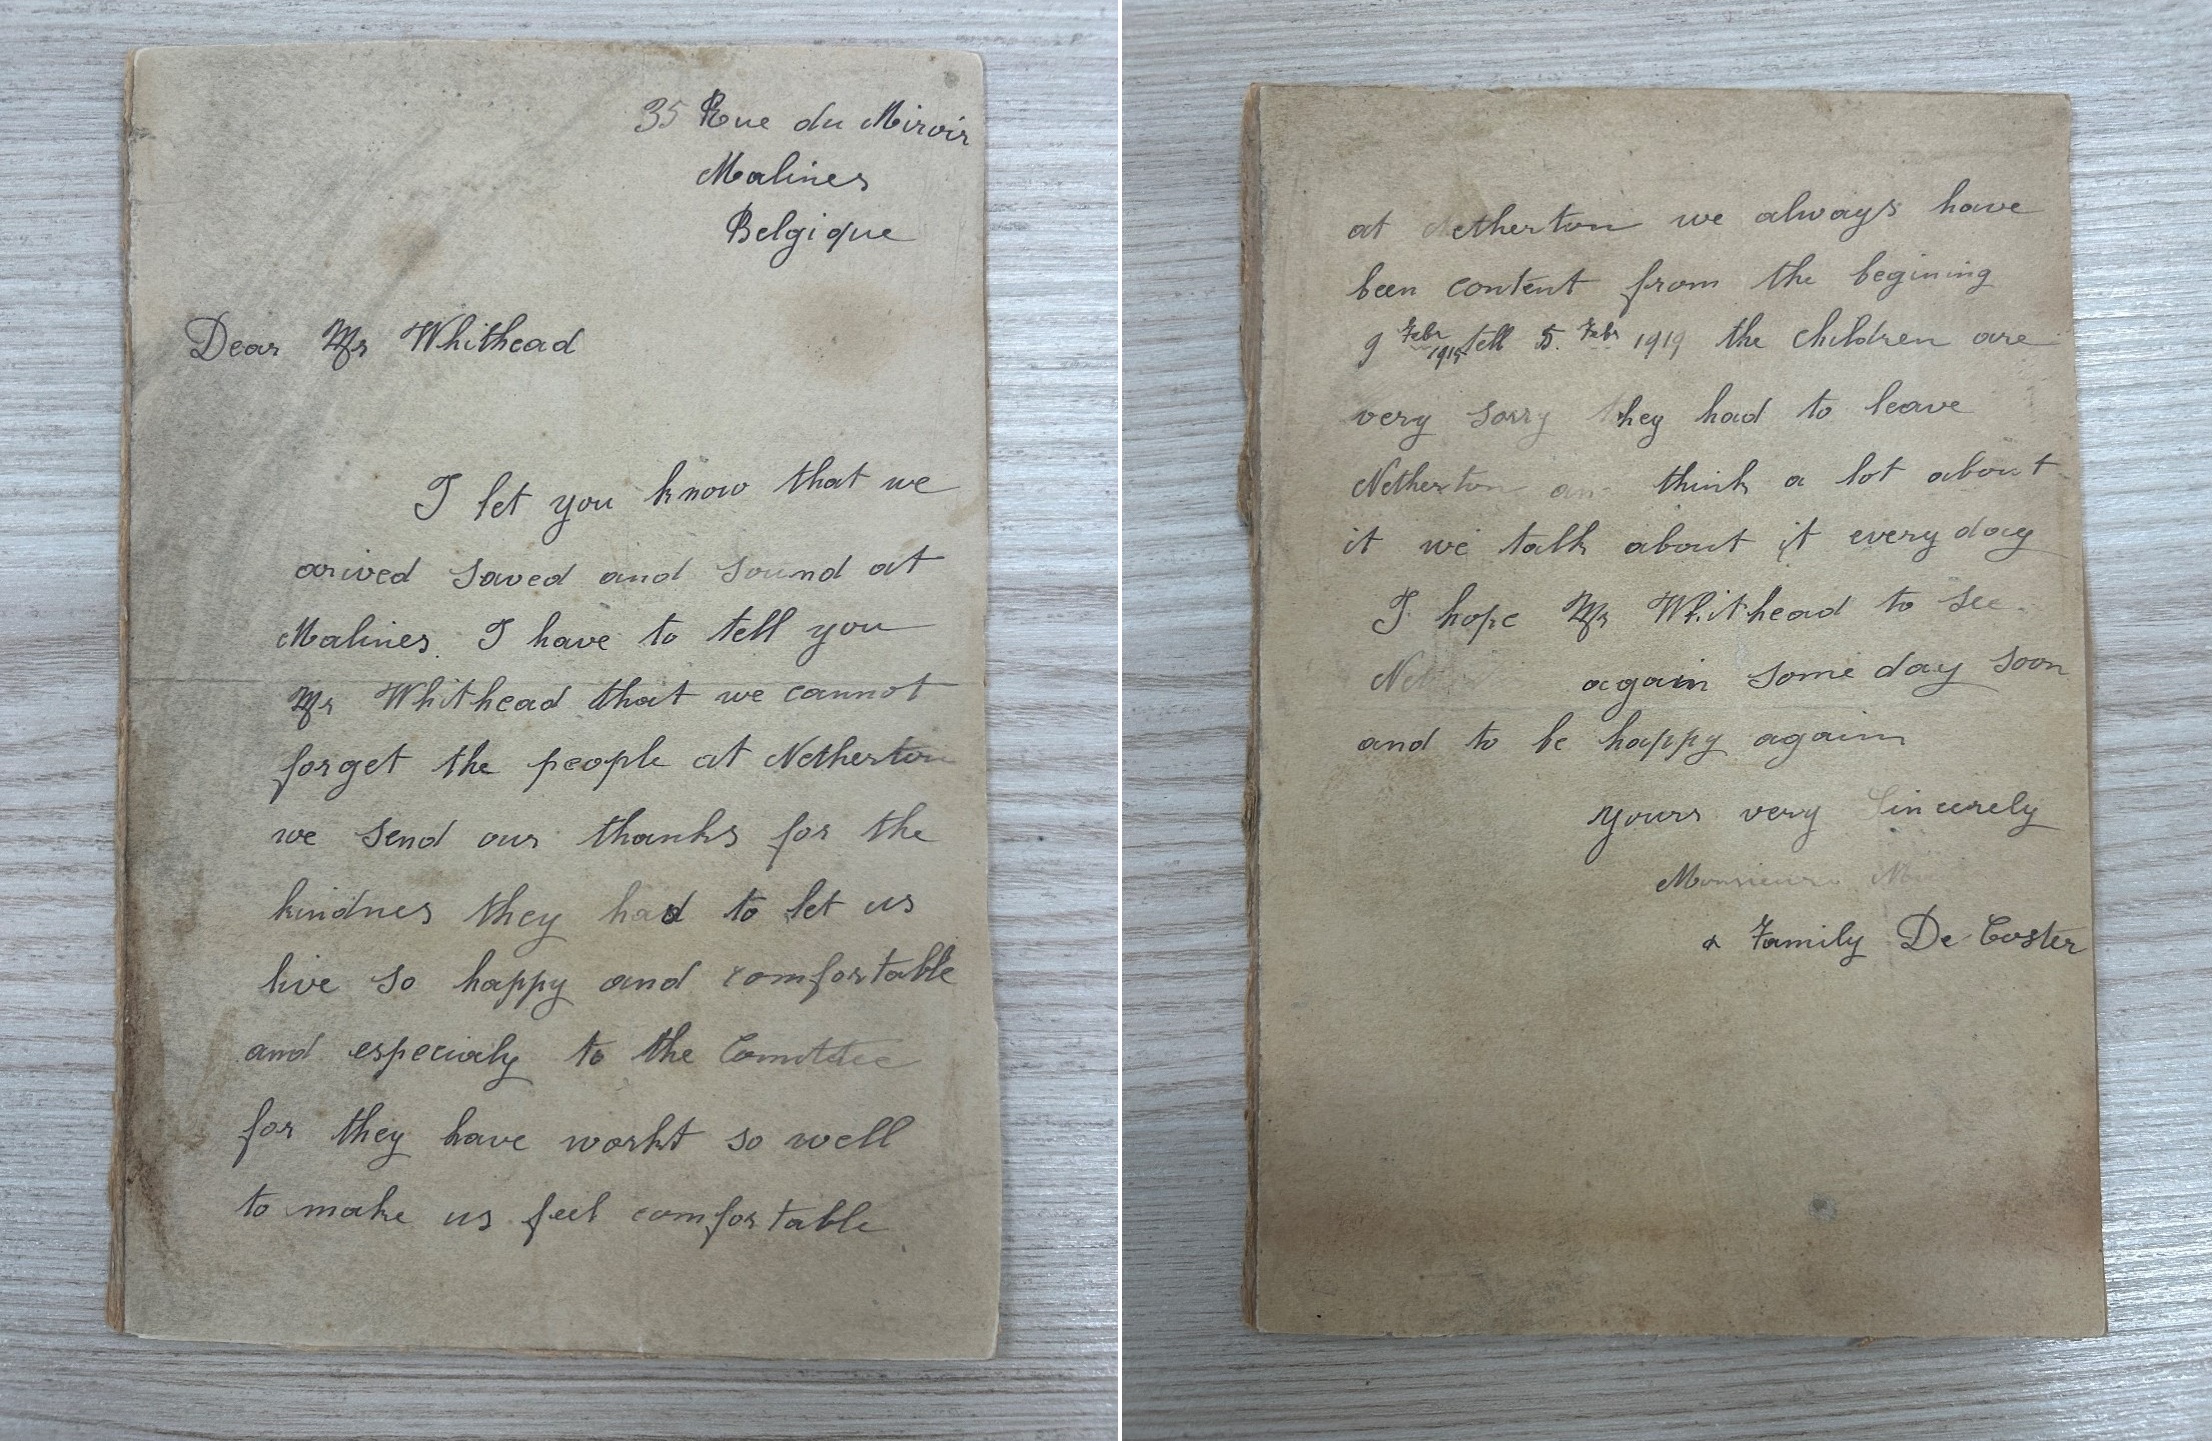 35 Rue du Miroir
Malines
Belgique
Dear Mr Whithead
I let you know that we
arived saved and sound at
Malines. I have to tell you
Mr Whithead that we cannot
forget the people at Netherton
we send our thanks for the
kindnes they had to let us
live so happy and comfortable
and especialy to the
for they have workt so well
to make us feel comfortable
at Netherton we always have
been content from the begining
9 Febr tell 5. Febr 1919 the children are
very sorry they had to leave
Netherton an think a lot about
it we talk about it every day
I hope Mr Whithead to see
again some day soon
and to be happy again
yours very Sincerely
Monsieur
& Family De Coster